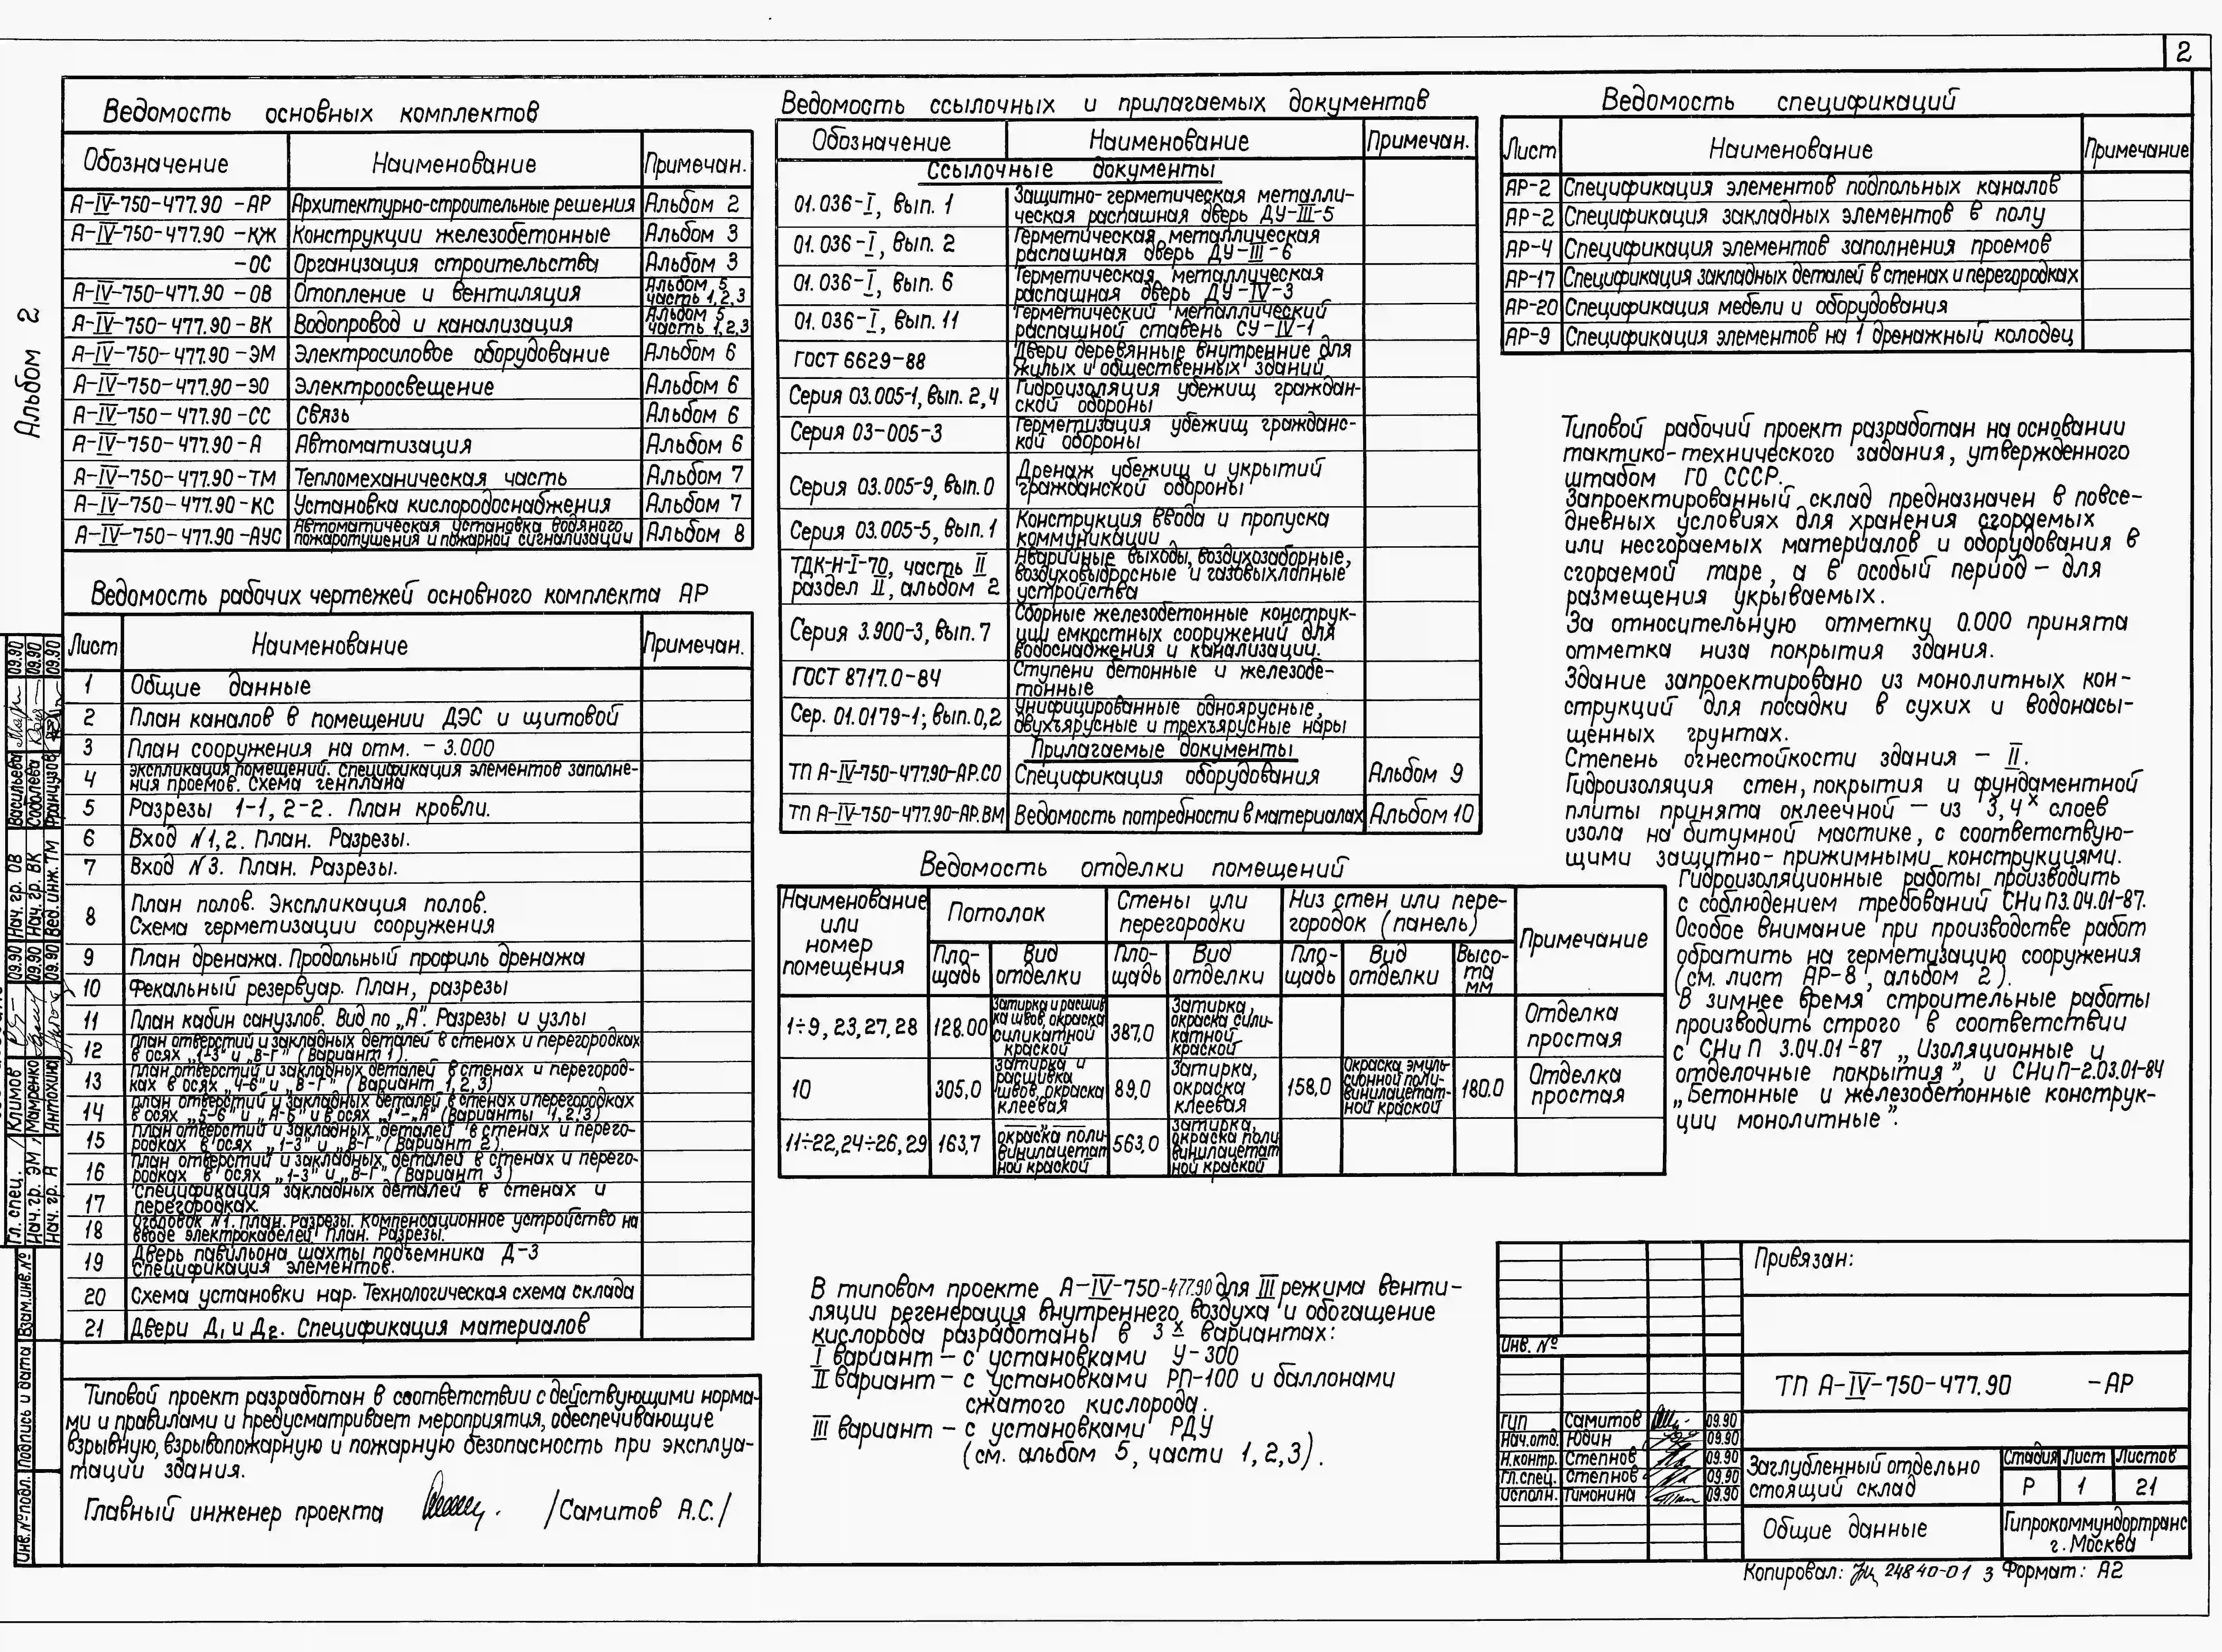 2
Альбом 2
Ведомость основных комплектов
Обозначение Наименование Примечан.
А-IV-750-477.90 -АР Архитектурно-строительные решения Альбом 2
А-IV-750-477.90 -КЖ Конструкции железобетонные Альбом 3
-ОС Организация строительства Альбом 3
А-IV-750-477.90 -ОВ Отопление и вентиляция Альбом 5 часть 1,2,3
А-IV-750-477.90 -ВК Водопровод и канализация Альбом 5 часть 1,2,3
А-IV-750-477.90 -ЭМ Электросиловое оборудование Альбом 6
А-IV-750-477.90 -ЭО Электроосвещение Альбом 6
А-IV-750-477.90 -СС Связь Альбом 6
А-IV-750-477.90 -А Автоматизация Альбом 6
А-IV-750-477.90 -ТМ Тепломеханическая часть Альбом 7
А-IV-750-477.90 -КС Установка кислородоснабжения Альбом 7
А-IV-750-477.90 -АУС Автоматическая установка водяного
пожаротушения и пожарной сигнализации Альбом 8
Ведомость рабочих чертежей основного комплекта АР
Лист Наименование Примечан.
1 Общие данные
2 План каналов в помещении ДЭС и щитовой
3 План сооружения на отм. - 3.000
4 экспликация помещений. Спецификация элементов заполне-
ния проемов. Схема генплана
5 Разрезы 1-1, 2-2. План кровли.
6 Вход N1,2. План. Разрезы.
7 Вход N3. План. Разрезы.
8 План полов. Экспликация полов.
Схема герметизации сооружения
9 План дренажа. Продольный профиль дренажа
10 Фекальный резервуар. План, разрезы
11 План кабин санузлов. Вид по „А". Разрезы и узлы
12 План отверстий и закладных деталей в стенах и перегородках
в осях „1-3" и „В-Г" (Вариант 1).
13 План отверстий и закладных деталей в стенах и перегород-
ках в осях „4-6" и „В-Г" (Вариант 1,2,3)
14 План отверстий и закладных деталей в стенах и перегородках
в осях „5-6" и „А-Б" и в осях „1"-„А" (Варианты 1,2,3)
15 План отверстий и закладных деталей в стенах и перего-
родках в осях „1-3" и „В-Г" (Вариант 2)
16 План отверстий и закладных деталей в стенах и перего-
родках в осях „1-3" и „В-Г" (Вариант 3)
17 Спецификация закладных деталей в стенах и
перегородках.
18 Оголовок N1. План. Разрезы. Компенсационное устройство на
вводе электрокабелей План. Разрезы.
19 Дверь павильона шахты подъемника Д-3
Спецификация элементов.
20 Схема установки нар. Технологическая схема склада
21 Двери Д1 и Д2. Спецификация материалов
Типовой проект разработан в соответствии с действующими норма-
ми и правилами и предусматривает мероприятия, обеспечивающие
взрывную, взрывопожарную и пожарную безопасность при эксплуа-
тации здания.
Главный инженер проекта /Самитов А.С./
Ведомость ссылочных и прилагаемых документов
Обозначение Наименование Примечан.
Ссылочные документы
01.036-I, вып. 1 Защитно-герметическая металли-
ческая распашная дверь ДУ-III-5
01.036-I, вып. 2 Герметическая металлическая
распашная дверь ДУ-III-6
01.036-I, вып. 6 Герметическая металлическая
распашная дверь ДУ-IV-3
01.036-I, вып. 11 Герметический металлический
распашной ставень СУ-IV-1
ГОСТ 6629-88 Двери деревянные внутренние для
жилых и общественных зданий
Серия 03.005-1, вып. 2,4 Гидроизоляция убежищ граждан-
ской обороны
Серия 03-005-3 Герметизация убежищ гражданс-
кой обороны
Серия 03.005-9, вып. 0 Дренаж убежищ и укрытий
гражданской обороны
Серия 03.005-5, вып. 1 Конструкция ввода и пропуска
коммуникации
ТДК-Н-I-70, часть II
раздел II, альбом 2 Аварийные выходы, воздухозаборные,
воздуховыбросные и газовыхлопные
устройства
Серия 3.900-3, вып. 7 Сборные железобетонные конструк-
ции емкостных сооружений для
водоснабжения и канализации.
ГОСТ 8717.0-84 Ступени бетонные и железобе-
тонные
Сер. 01.0179-1; вып. 0,2 Унифицированные одноярусные,
двухъярусные и трехъярусные нары
Прилагаемые документы
ТП А-IV-750-477.90-АР.СО Спецификация оборудования Альбом 9
ТП А-IV-750-477.90-АР.ВМ Ведомость потребности в материалах Альбом 10
Ведомость отделки помещений
Наименование или номер помещения Потолок Стены или перегородки Низ стен или пере-
городок (панель) Примечание
Пло-
щадь Вид отделки Пло-
щадь Вид отделки Пло-
щадь Вид отделки Высо-
та мм
1÷9, 23,27,28 128.00 Затирка и расшив
ка швов, окраска
силикатной
краской 387,0 Затирка,
окраска сили-
катной
краской Отделка
простая
10 305,0 Затирка и
расшивка
швов, окраска
клеевая 89,0 Затирка,
окраска
клеевая 158,0 Окраска эмуль
сионной поли-
винилацетат-
ной краской 180.0 Отделка
простая
11÷22,24÷26,29 163,7 окраска поли-
винилацетат
ной краской 563,0 затирка,
окраска поли
винилацетат
ной краской
В типовом проекте А-IV-750-477.90 для III режима венти-
ляции регенерация внутреннего воздуха и обогащение
кислорода разработаны в 3х вариантах:
I вариант - с установками У-300
II вариант - с установками РП-100 и баллонами
сжатого кислорода.
III вариант - с установками РДУ
(см. альбом 5, части 1,2,3).
Ведомость спецификаций
Лист Наименование Примечание
АР-2 Спецификация элементов подпольных каналов
АР-2 Спецификация закладных элементов в полу
АР-4 Спецификация элементов заполнения проемов
АР-17 Спецификация закладных деталей в стенах и перегородках
АР-20 Спецификация мебели и оборудования
АР-9 Спецификация элементов на 1 дренажный колодец
Типовой рабочий проект разработан на основании
тактико-технического задания, утвержденного
штабом ГО СССР.
Запроектированный склад предназначен в повсе-
дневных условиях для хранения сгораемых
или несгораемых материалов и оборудования в
сгораемой таре, а в особый период - для
размещения укрываемых.
За относительную отметку 0.000 принята
отметка низа покрытия здания.
Здание запроектировано из монолитных кон-
струкций для посадки в сухих и водонасы-
щенных грунтах.
Степень огнестойкости здания - II.
Гидроизоляция стен, покрытия и фундаментной
плиты принята оклеечной - из 3,4х слоев
изола на битумной мастике, с соответствую-
щими защитно-прижимными конструкциями.
Гидроизоляционные работы производить
с соблюдением требований СНиП3.04.01-87.
Особое внимание при производстве работ
обратить на герметизацию сооружения
(см. лист АР-8, альбом 2).
В зимнее время строительные работы
производить строго в соответствии
с СНиП 3.04.01-87 „Изоляционные и
отделочные покрытия", и СНиП-2.03.01-84
„Бетонные и железобетонные конструк-
ции монолитные".
Привязан:
Инв. №
ТП А-IV-750-477.90 -АР
ГИП Самитов 09.90
Нач.отд. Юдин 09.90
Н.контр. Степнов 09.90
Гл.спец. Степнов 09.90
Исполн. Тимонина 09.90
Заглубленный отдельно
стоящий склад
Стадия Лист Листов
Р 1 21
Общие данные
Гипрокоммундортранс
г. Москва
Копировал: 24840-01 3 Формат: А2
Гл. спец. Климов 09.90 Нач. гр. ОВ Васильева 09.90
Нач. гр. ЭМ Мамренко 09.90 Нач. гр. ВК Соболева 09.90
Нач. гр. А Антохина 09.90 Вед. инж. ТМ Французов 09.90
Инв. № подл. Подпись и дата Взам.инв.№